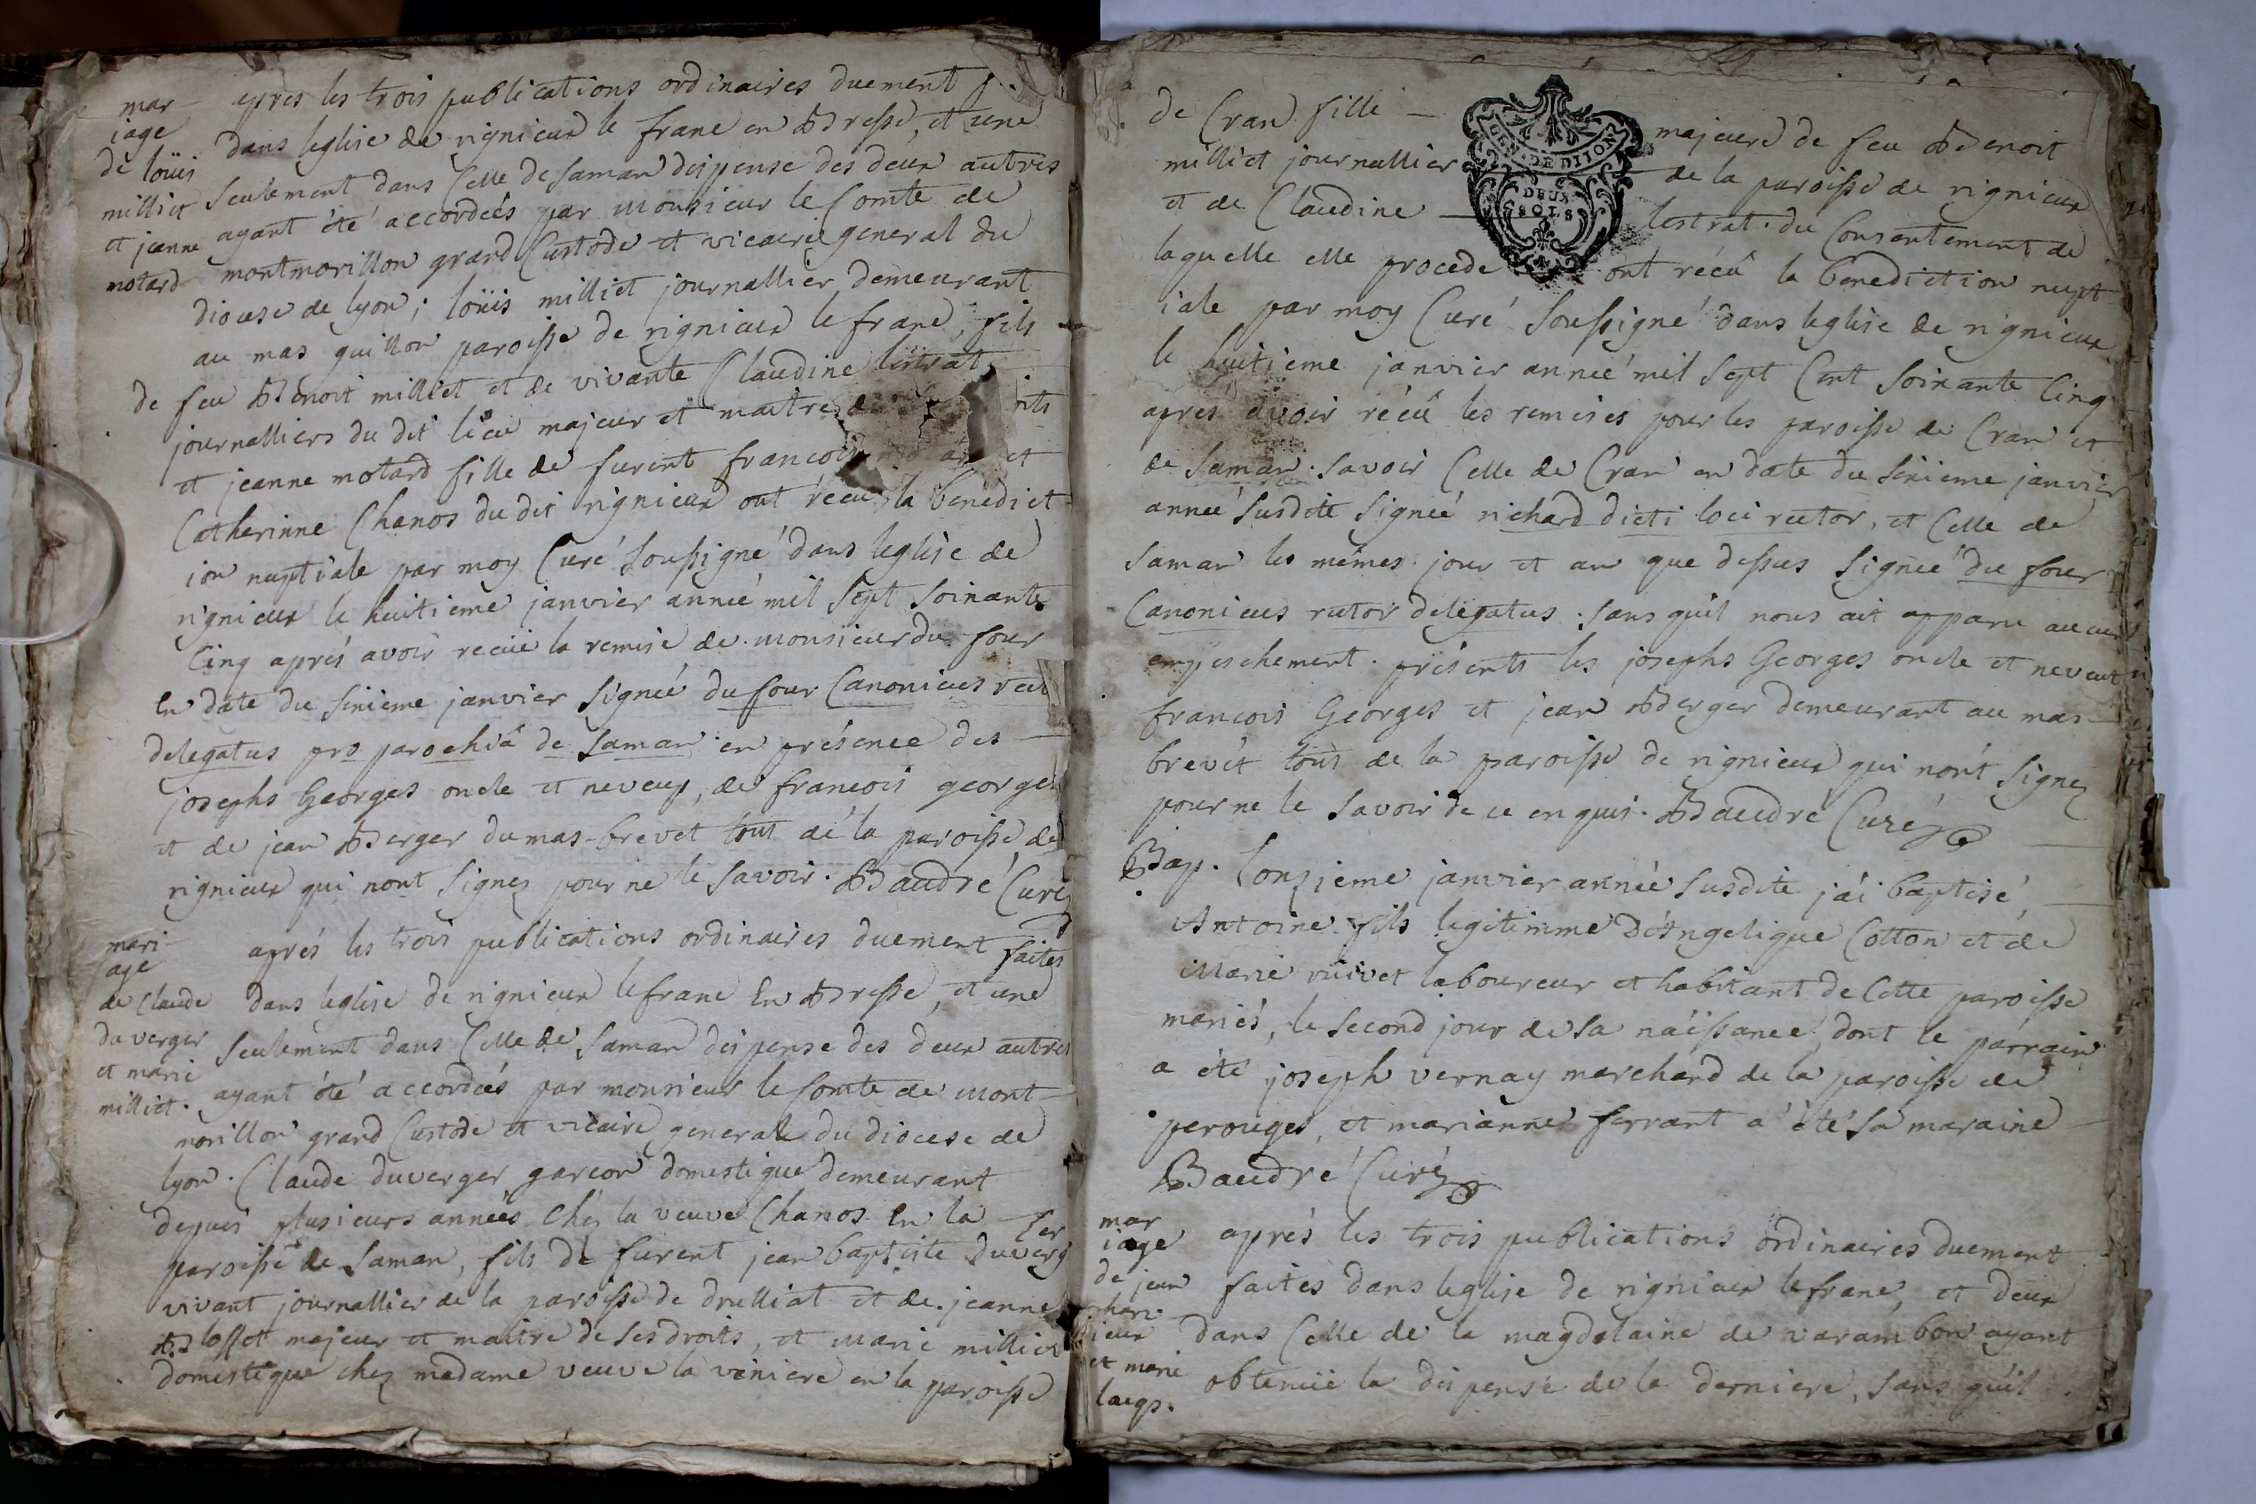 mar
iage
de loüis
milliet
et jeanne
motard
apres les trois publications ordinaires duement
dans leglise de rignieux le franc en Bresse, et une
seulement dans Celle de samar dispense des deux autres
ayant été accordeés par monsieur le Comte de
montmorillon grand Custode et vicaire general du
diocese de lyon; loüis milliet journallier demeurant
au mas guillon paroisse de rignieux le franc, fils
de feu Benoit milliet et de vivante Claudine lestrat
journalliers du dit lieu majeur et maitre
et jeanne motard fille de furent francois et
Catherinne Chanos du dit rignieux ont récu la bénédict-
ion nuptiale par moy Curé soussigné dans leglise de
rignieux le huitieme janvier année mil sept soixante
Cinq aprés avoir recüe la remise de monsieur du four
En date du sixieme janvier signeé du four Canonicus rect
delegatus pro parochiâ de samar en présence des
josephs Georges oncle et neveux, de francois georges
et de jean Berger du mas-brevet tous de la paroisse de
rignieux qui nont signez pour ne le savoir. Baudré Curé
mari-
age
de Claude
duverger
et marie
milliet.
aprés les trois publications ordinaires duement faites
dans leglise de rignieux le franc En Bresse, et une
seulement dans Celle de samar dispense des deux autres
ayant été accordeés par monsieur le Comte de mont-
morillon grand Custode et vicaire general du diocese de
lyon. Claude duverger garcon domestique demeurant
depuis plusieurs années Chéz la veuve Chanos En la
paroisse de samar, fils de furent jean baptiste duverg
ier
vivant journallier de la paroisse de druillat et de jeanne
loffet majeur et maitre de ses droits, et marie milliet
domestique chez madame veuve la viniere en la paroisse
de Cran fille majeure de feu Benoit
GEN. DE DIJON
DEUX
SOLS
milliet journallier de la paroisse de rignieux
et de Claudine lestrat. du Consentement de
laquelle elle procede ont récû la benediction nupt-
iale par moy Curé soussigné dans leglise de rignieux
le huitieme janvier anneé mil sept Cent soixante Cinq
apres avoir récû les remises pour les paroisse de Cran et
de samar. savoir Celle de Cran en date du sixieme janvier
anneé susdite signeé richard dicti loci rector, et Celle de
samar les mêmes jour et an que dessus signeé du four
Canonicus rector delegatus. sans quil nous ait apparu aucun
empeschement. présents les josephs Georges oncle et neveux
francois Georges et jean Berger demeurant au mas-
brevét tous de la paroisse de rignieux qui nont signez
pour ne le savoir de ce enquis. Baudré Curé
Bap. lonzieme janvier année susdite jái baptisé
Antoine fils legitimme d'Angelique Cotton et de
Marie vuivet laboureur et habitant de Cette paroisse
mariés, le second jour de sa näissance, dont le parrain
a été joseph vernay marchand de la paroisse de
perouges, et marianne ferrant a été sa maraine
Baudré Curé
mar
iage
de jean
ieux
et marie
aprés les trois publications ordinaires duement
faites dans leglise de rignieux le franc, et deux
dans Celle de la magdelaine de varambon ayant
obtenüe la dispense de la derniere, sans quil